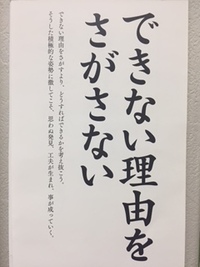 できない理由を
さがさない
できない理由をさがすより、どうすればできるかを考え抜こう。
そうした積極的な姿勢に徹してこそ、思わぬ発見、工夫が生まれ、事が成っていく。